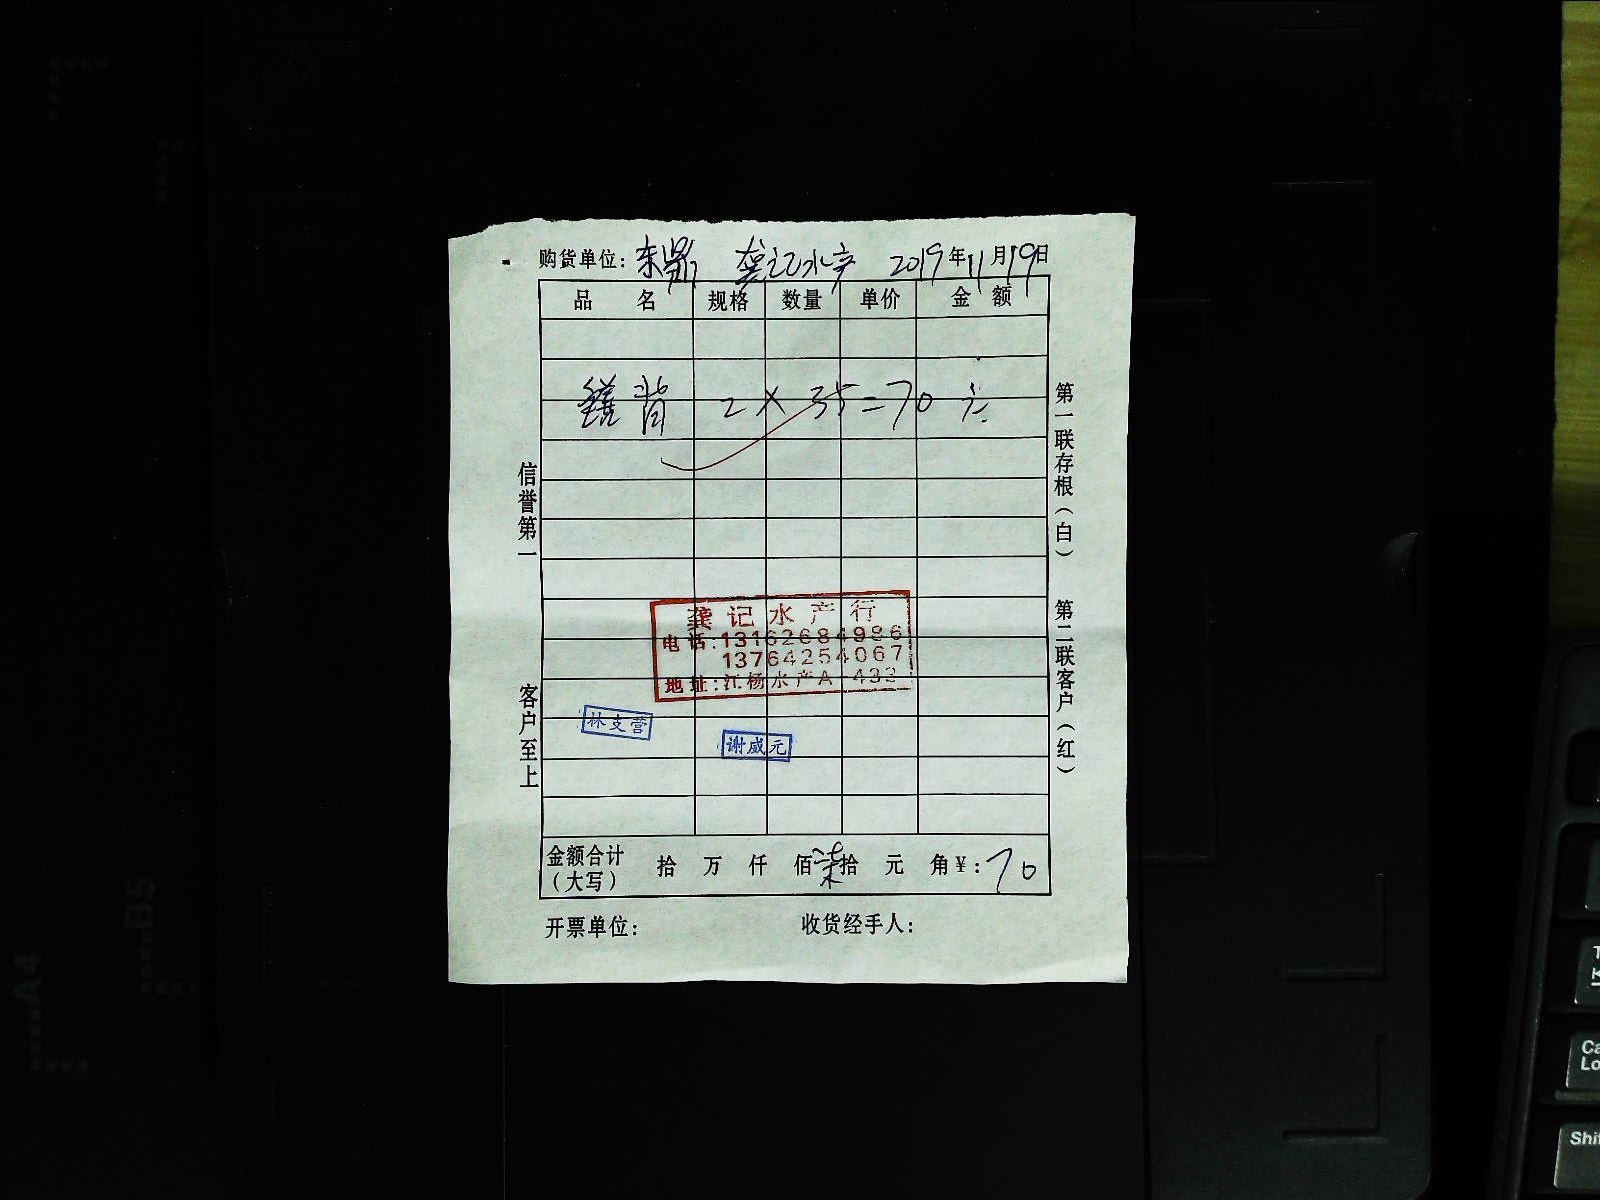 购货单位：东鼎 龚记水产 2019年11月19日
品 名 规格 数量 单价 金 额
鳝背 2×35=70元
信誉第一 客户至上
第一联存根（白） 第二联客户（红）
龚记水产行
电话:13162684986
13764254067
地址:江杨水产A-433
林支营
谢威元
金额合计（大写） 拾 万 仟 佰柒拾 元 角¥:70
开票单位： 收货经手人：
A4
B5
Shif